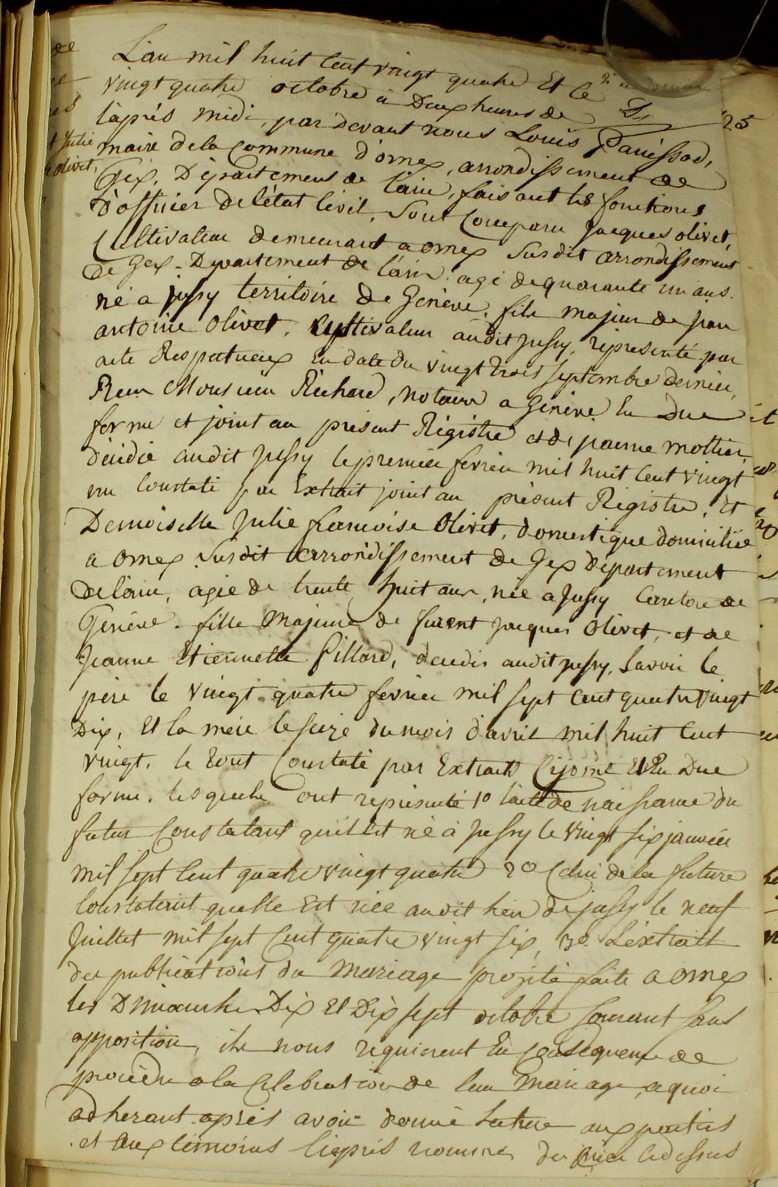 L'an mil huit cent vingt quatre Et le
vingt quatre octobre à Deux heures de
l'aprés midi, par devant nous Louis Panissod,
maire de la commune d'ornex, arrondissement de
Gex, Département de l'ain, faisant les fonctions
D'officier De l'état Civil, sont Comparu Jacques olivet,
Cultivateur demeurant a ornex susdit arrondissement
De Gex, Département de l'ain agé de quarante un ans.
né a Jussy territoire de Genève, fils majeur de jean
antoine olivet, Cultivateur audit jussy, représenté par
acte Respectueux En date du vingt trois septembre dernier,
Reçu Monsieur Richard, notaire a Genève En Due
forme et joint au présent Régistre et de jeanne mottier
décédée audit Jussy le premier fevrier mil huit cent vingt
un Constaté par Extrait joint au présent Registre, Et
Demoiselle Julie francoise olivet, domestique domiciliée
a ornex susdit arrondissement de Gex département
De l'ain, agée de trente huit ans, née a Jussy Canton de
Genève, fille Majeure de furent Jacques olivet, et de
Jeanne Etiennette Pillard, décédés audit jussy, Savoir le
père le vingt quatre fevrier mil sept cent quatre vingt
Dix, Et la mère le seize du mois d'avril mil huit cent
vingt, le tout Constaté par Extraits Cijoint Et En Due
forme. lesquels ont représenté 1o l'acte de naissance du
futur Constatant qu'il Est né à Jussy le vingt six janvier
mil sept Cent quatre vingt quatre 2o Celui de la future
Constatant quelle Est née audit lieu de jussy le neuf
Juillet mil sept Cent quatre vingt six, 3o L'extrait
des publications du mariage projété faite a ornex
les Dimanches Dix Et Dix sept octobre Courant sans
opposition, ils nous requierent En Consequence de
procéder a la Célébration de leur Mariage, a quoi
adherant aprés avoir donné lecture aux parties
et aux témoins ciaprés nommés des piéces cidessus